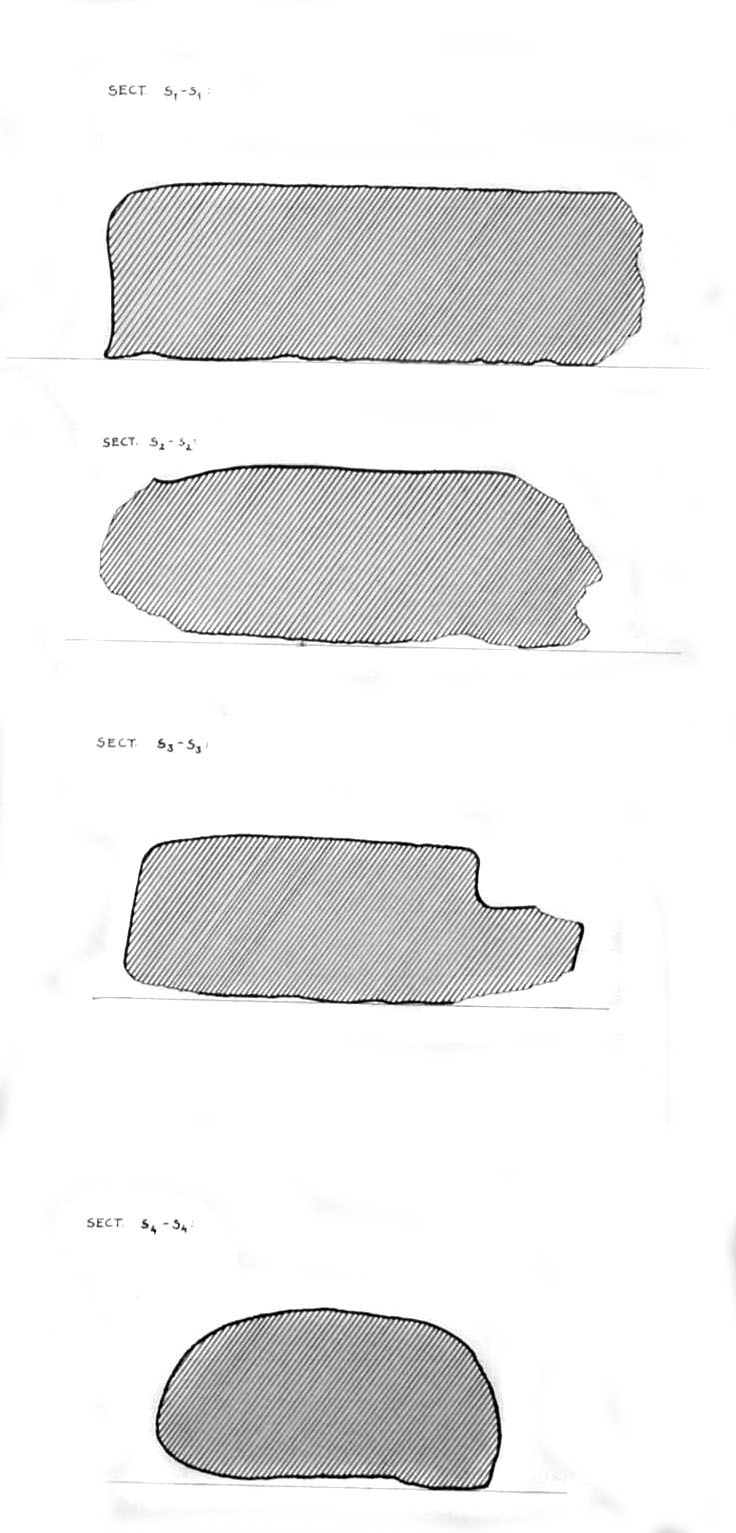 SECT. S₁-S₁:
SECT. S₂-S₂:
SECT. S₃-S₃:
SECT. S₄-S₄: